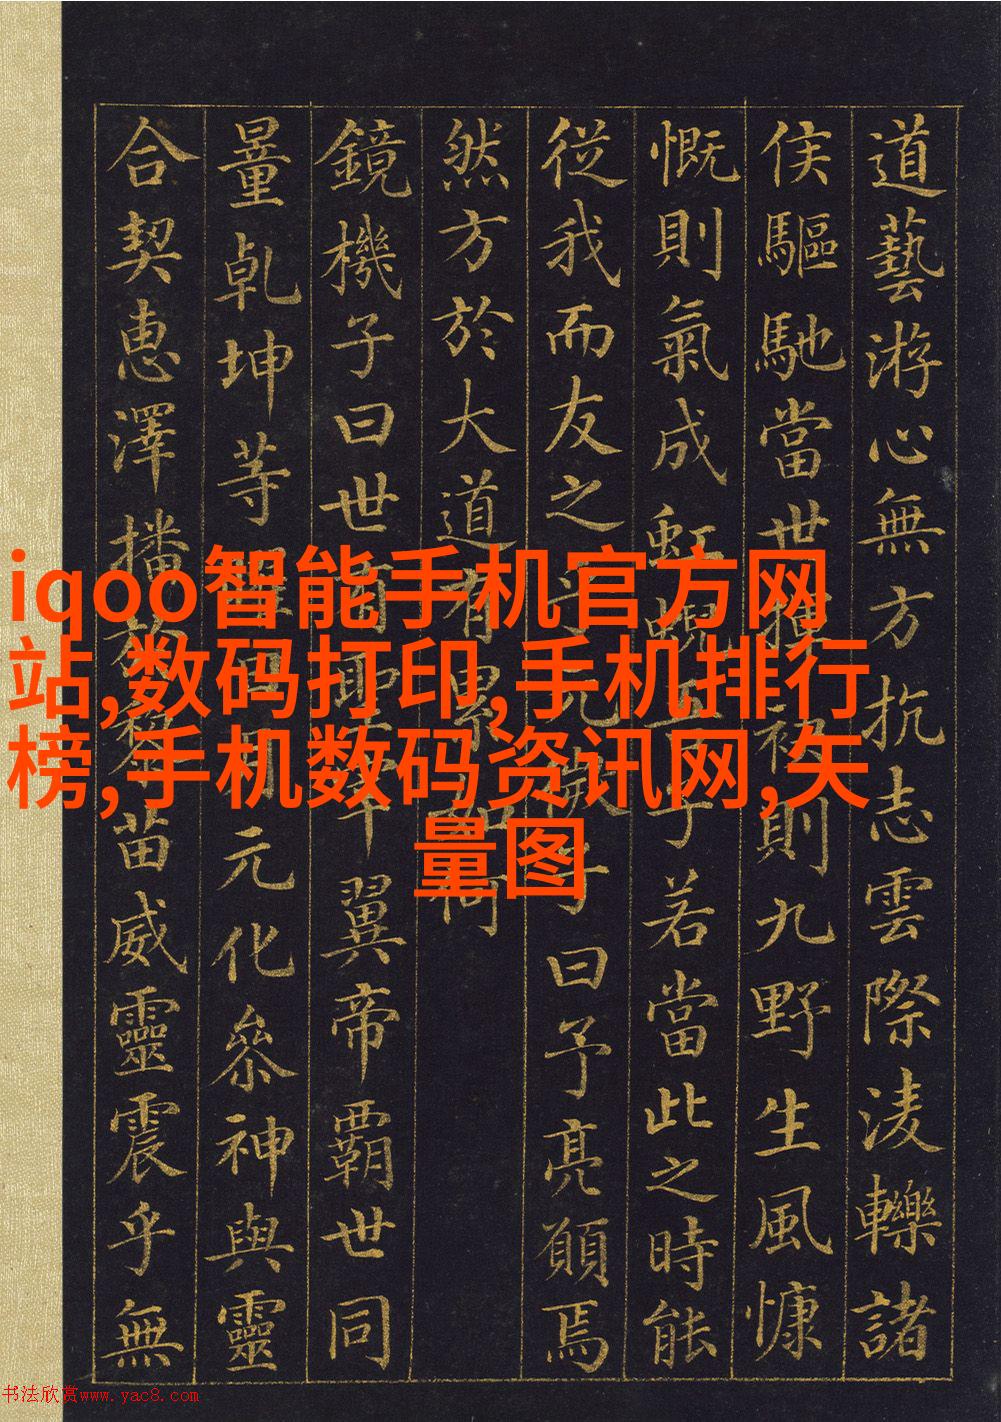 道藝游心無方抗志雲際淩轢諸
侯驅馳當世揮袂則九野生風慷
慨則氣成虹蜺吾子若當此之時能
從我而友之乎元微子曰予亮願焉
然方於大道有累如何
鏡機子曰世有聖宰翼帝霸世同
量乾坤等曜日月元化叅神與靈
合契惠澤播黎苗威靈震乎無
iqoo智能手机官方网
站,数码打印,手机排行
榜,手机数码资讯网,矢
量图
书法欣赏www.yac8.com